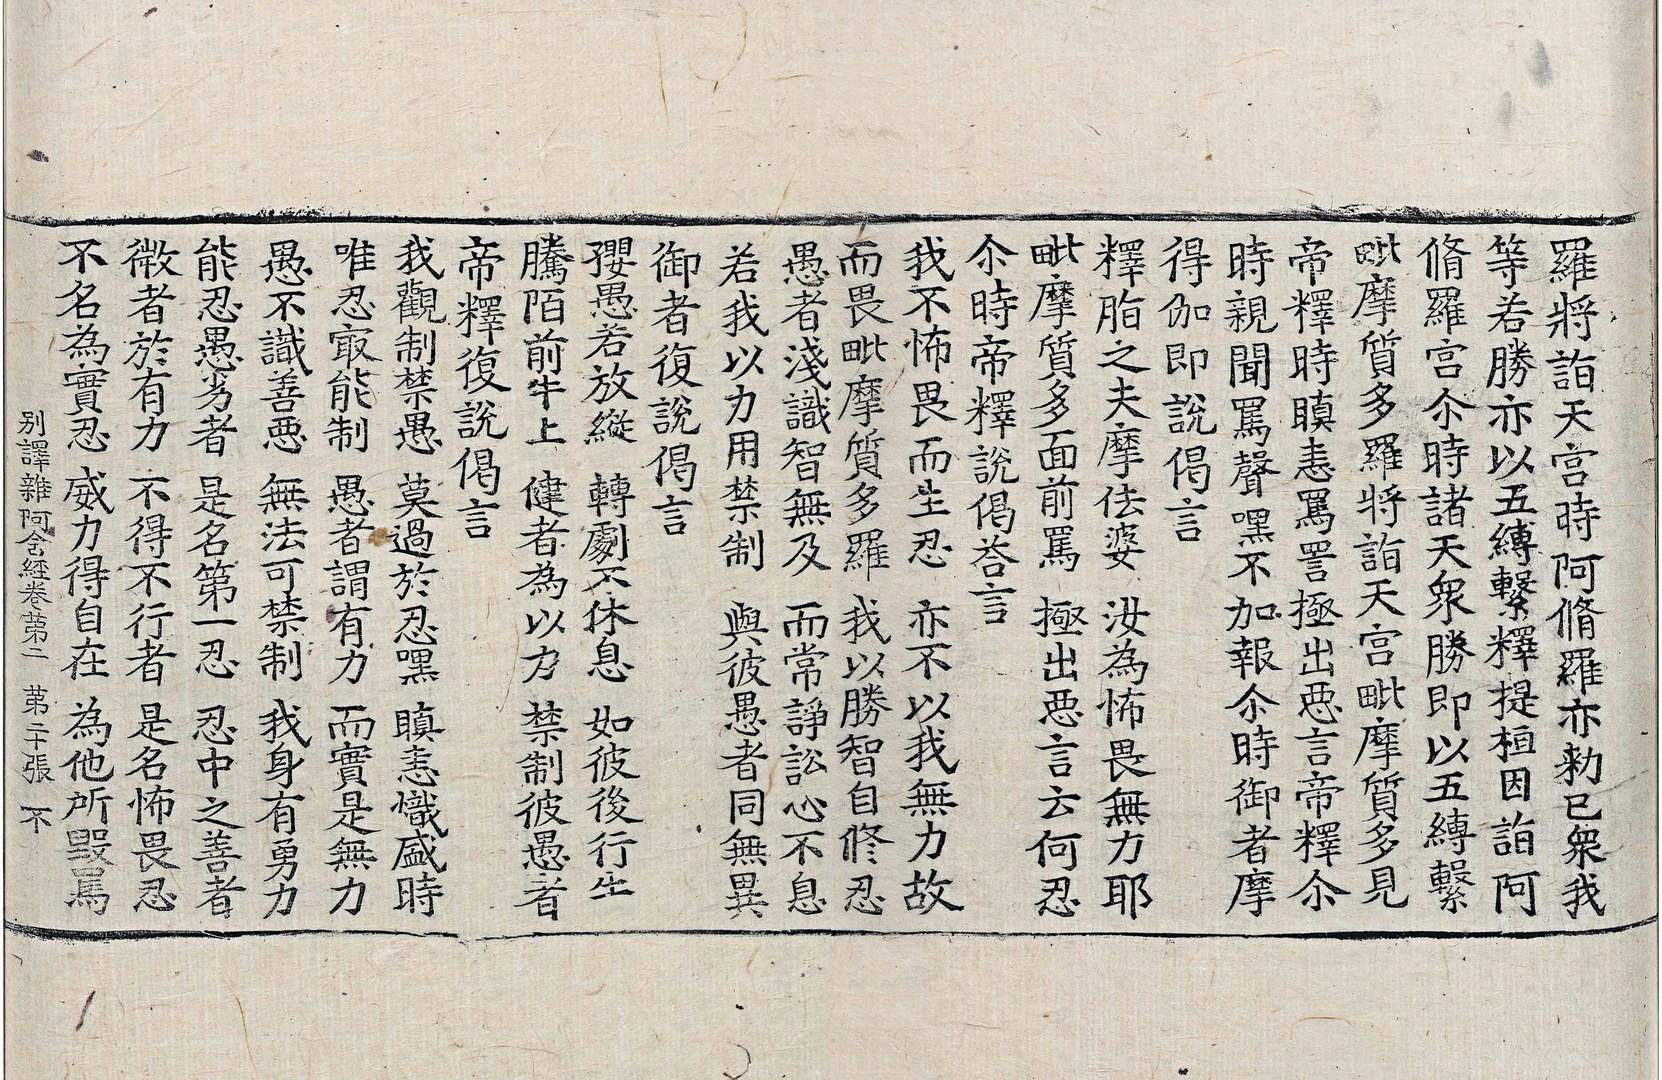 羅將詣天宫時阿脩羅亦勑已衆我
等若勝亦以五縛繫釋提桓因詣阿
脩羅宫尒時諸天衆勝即以五縛繫
毗摩質多羅將詣天宫毗摩質多見
帝釋時瞋恚罵詈極出惡言帝釋尒
時親聞罵聲嘿不加報尒時御者摩
得伽即說偈言
釋脂之夫摩佉婆　汝為怖畏無力耶
毗摩質多面前罵　極出惡言云何忍
尒時帝釋說偈荅言
我不怖畏而生忍　亦不以我無力故
而畏毗摩質多羅　我以勝智自修忍
愚者淺識智無及　而常諍訟心不息
若我以力用禁制　與彼愚者同無異
御者復說偈言
孾愚若放縱　轉劇不休息　如彼後行牛
騰陌前牛上　健者為以力　禁制彼愚者
帝釋復說偈言
我觀制禁愚　莫過於忍嘿　瞋恚熾盛時
唯忍㝡能制　愚者謂有力　而實是無力
愚不識善惡　無法可禁制　我身有勇力
能忍愚劣者　是名第一忍　忍中之善者
微者於有力　不得不行者　是名怖畏忍
不名為實忍　威力得自在　為他所毀罵
别譯雜阿含經卷苐二　苐二十張　不